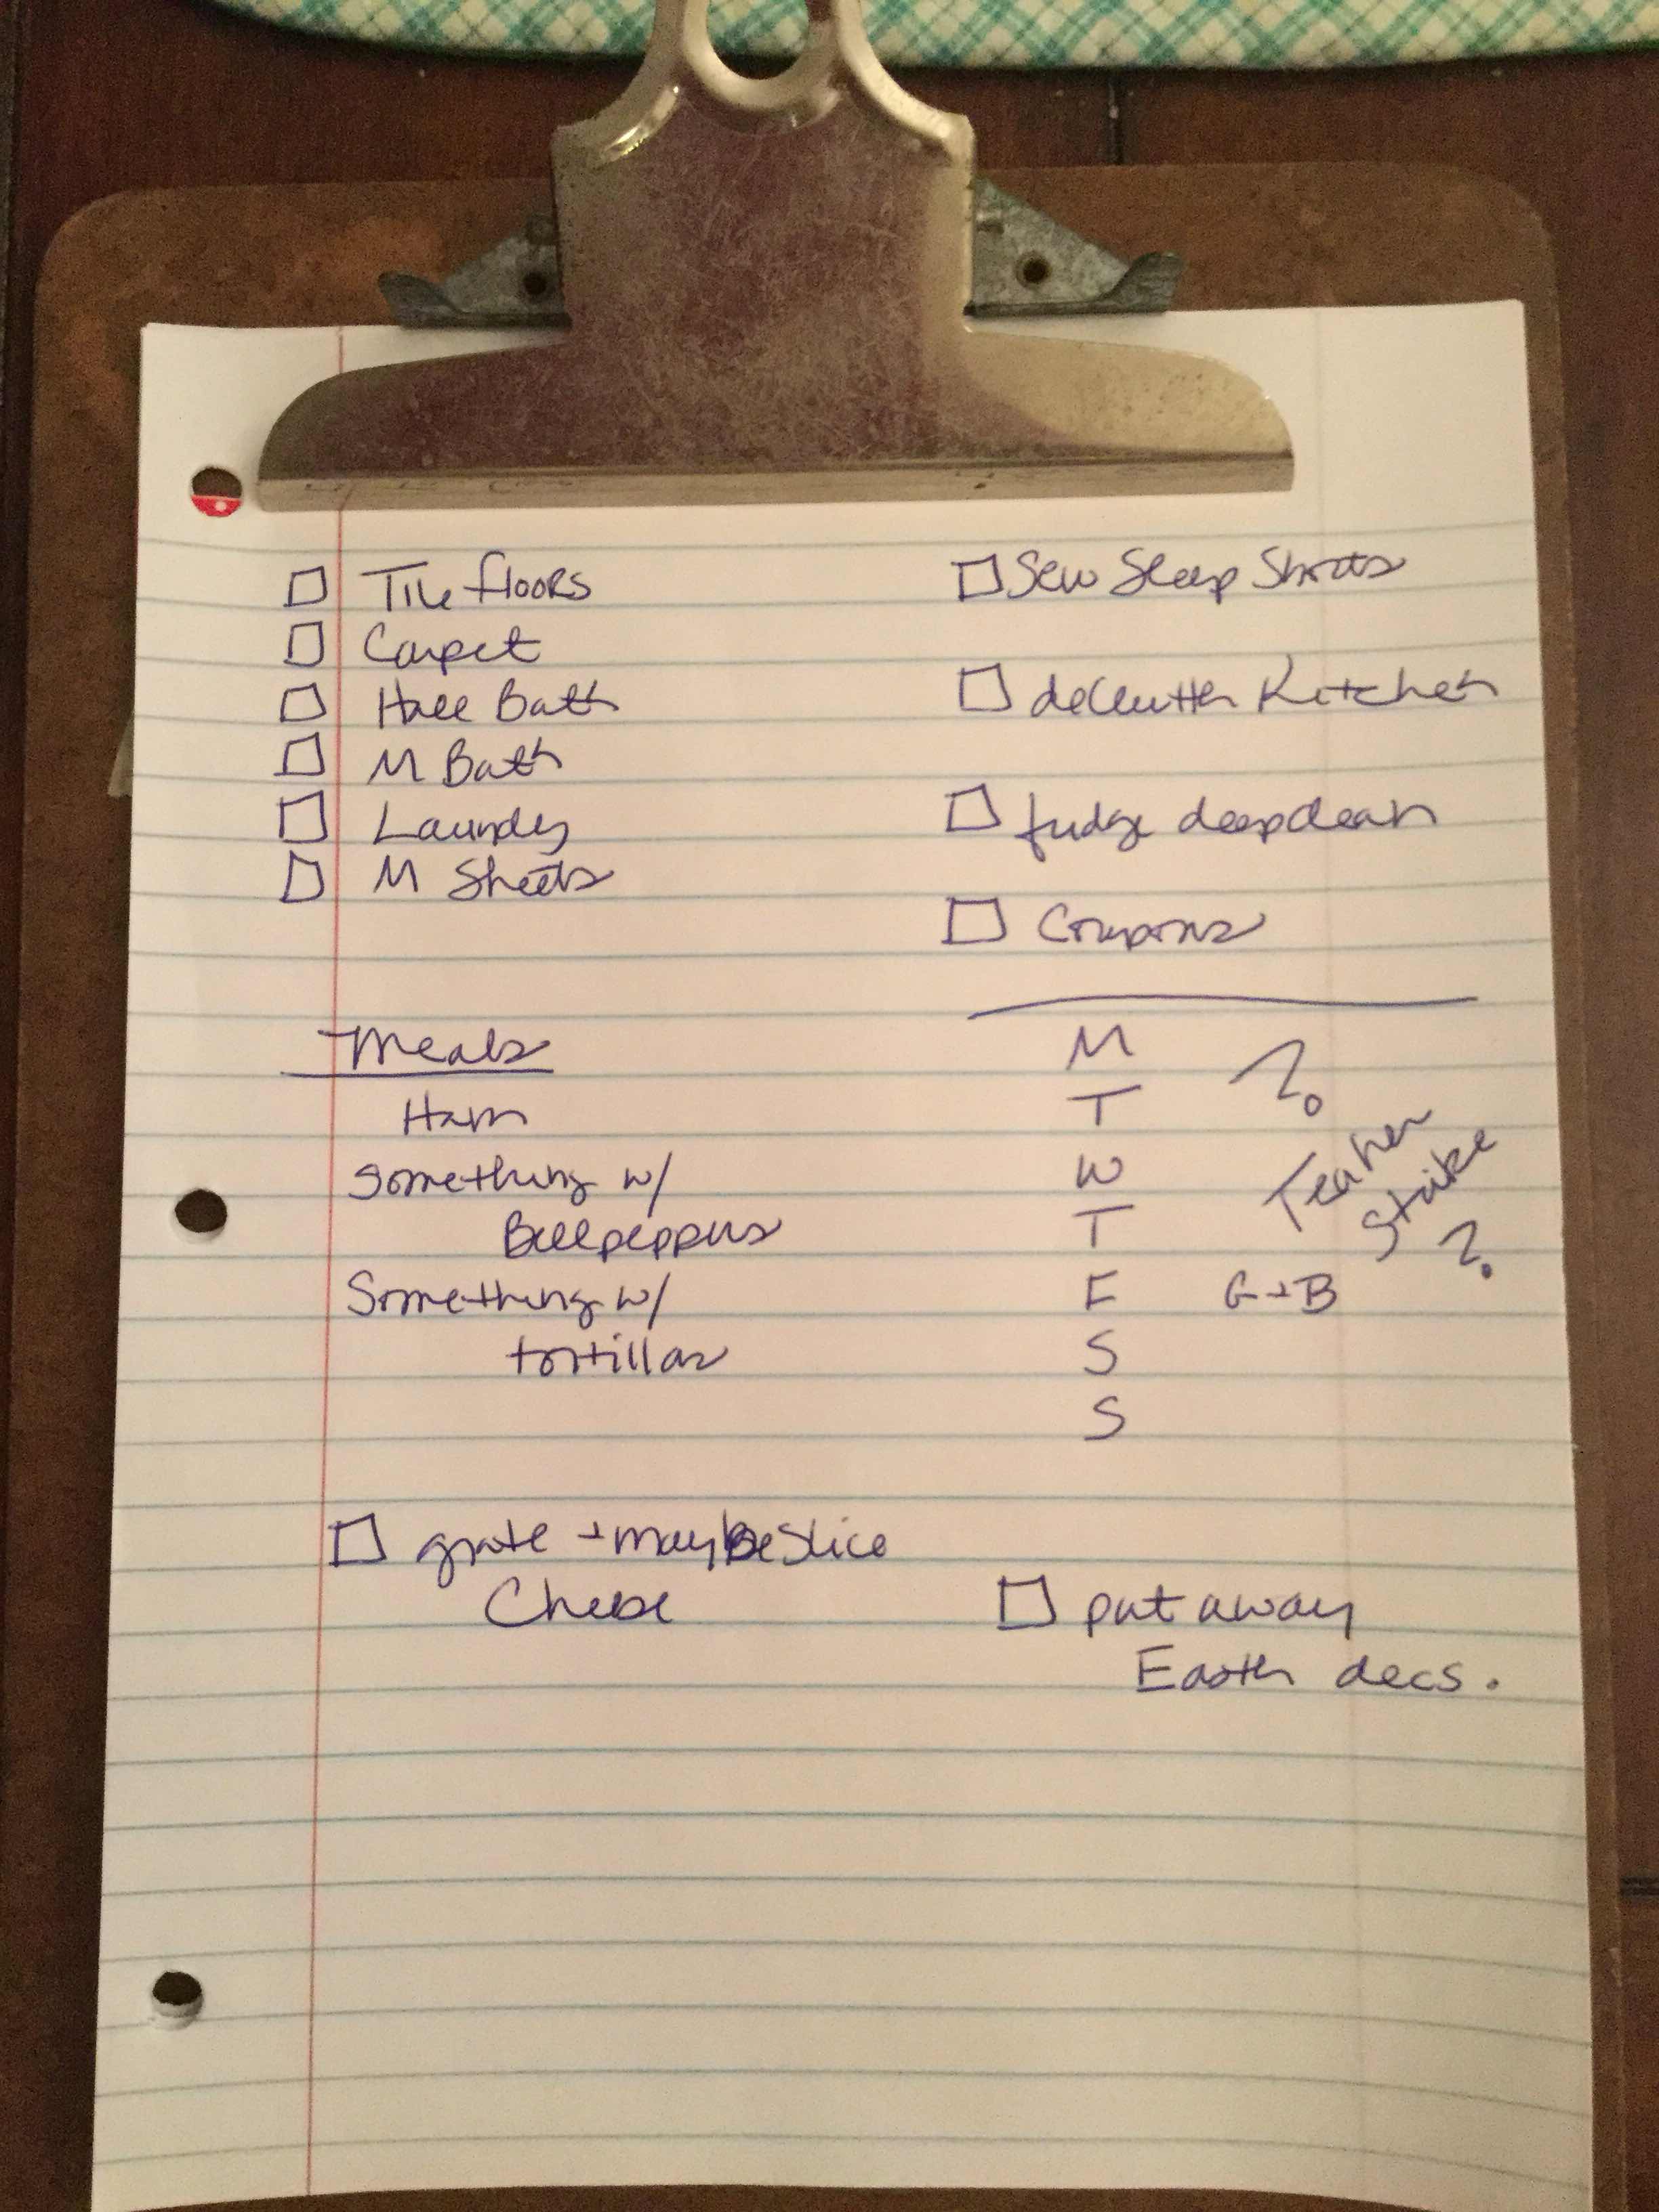 Tile floors
Carpet
Hall Bath
M Bath
Laundry
M Sheets
Sew Sleep Shorts
declutter Kitchen
fudge deepclean
Coupons
Meals
Ham
Something w/
Bellpeppers
Something w/
tortillas
M ?
T
W
T
F G+B
S
S
Teacher
Strike
?
grate + maybe slice
Cheese
put away
Easter decs.